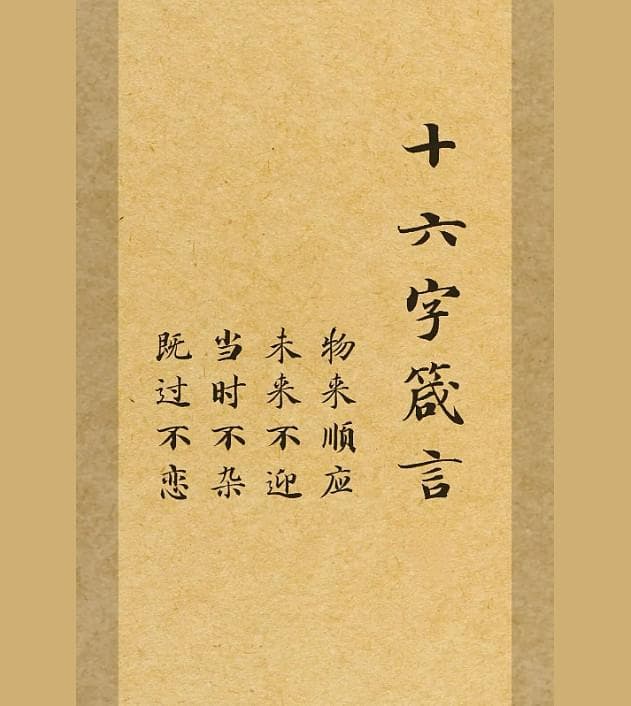 十六字箴言
物来顺应
未来不迎
当时不杂
既过不恋